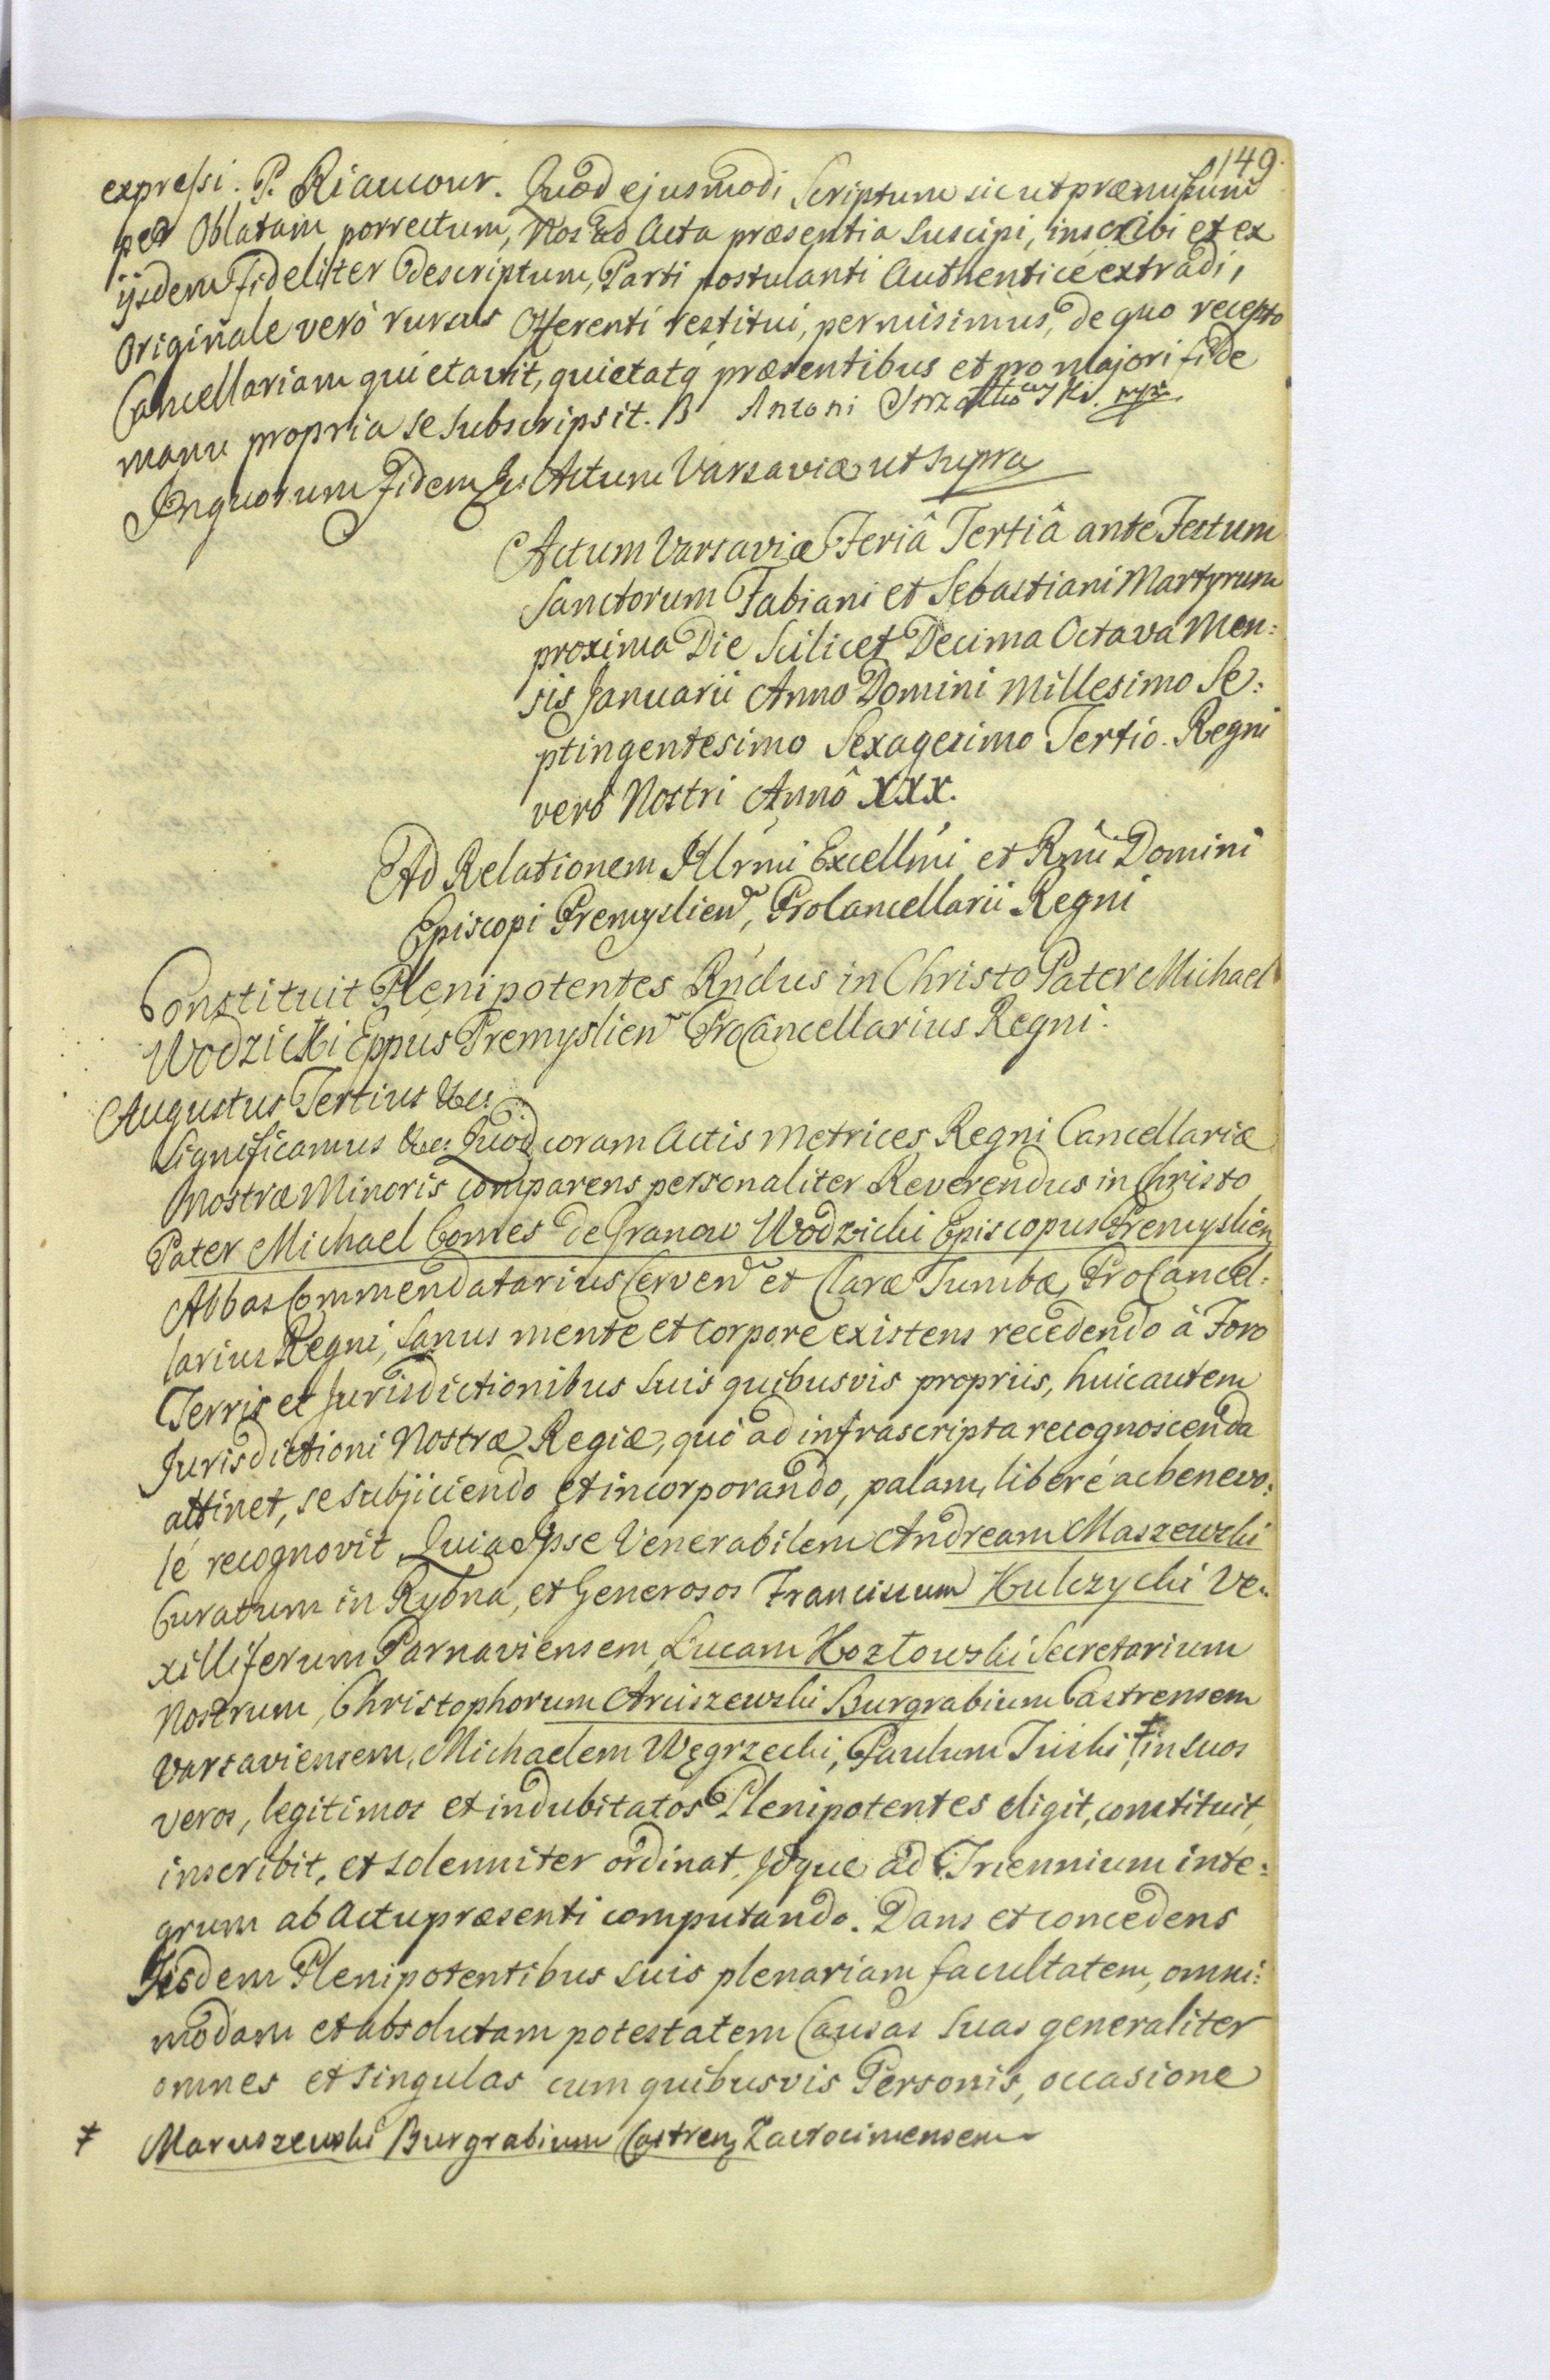 149.
expressi. P. Riaucour. Quod ejusmodi Scriptum sicut præmissum
per Oblatam porrectum, Nos ad Acta præsentia suscipi, inscribi et ex
ijsdem Fideliter Descriptum, Parti postulanti Authenticè extradi,
Originale verò rursus Offerenti restitui, permisimus, de quo recepto
Cancellariam quietavit, quietatq præsentibus et pro majori fide
manu propria se subscripsit. Antoni mpr.
In quorum Fidem &c. Actum Varsaviæ ut supra
Actum Varsaviæ Feriâ Tertiâ ante Festum
Sanctorum Fabiani et Sebastiani Martyrum
proxima Die Scilicet Decima Octava Men:
sis Januarii Anno Domini Millesimo Se:
ptingentesimo Sexagesimo Tertio. Regni
verò Nostri Annô XXX.
Ad Relationem Illrmi Excellmi et Rmi Domini
Episcopi Premyslien, ProCancellarii Regni
Constituit Plenipotentes Rndus in Christo Pater Michael
Wodzicki Eppus Premyslien ProCancellarius Regni.
Augustus Tertius &c.
Significamus &c. Quod coram Actis Metrices Regni Cancellariæ
Nostræ Minoris comparens personaliter Reverendus in Christo
Pater Michael Comes de Granow Wodzicki Episcopus Premyslien
Abbas Commendatarius Cerven et Claræ Tumbæ, ProCancel:
larius Regni, Sanus mente et Corpore existens recedendo à Foro
Terris et Jurisdictionibus suis quibusvis propriis, huic autem
Jurisdictioni Nostræ Regiæ, quò ad infrascripta recognoscenda
attinet, se subjiciendo et incorporando, palam, liberé ac benevo:
lé recognovit, Quia Ipse Venerabilem Andream Maszewski
Curatum in Rybna, et Generosos Franciscum Hulczycki Ve:
xilliferum Parnaviensem, Lucam Kozłowski Secretarium
Nostrum, Christophorum Arciszewski Burgrabium Castrensem
Varsaviensem, Michaelem Węgrzecki, Paulum ≠ in suos
veros, legitimos et indubitatos Plenipotentes eligit, constituit,
inscribit, et solenniter ordinat, Idque ad Triennium inte:
grum ab Actu præsenti computando. Dans et concedens
Iisdem Plenipotentibus suis plenariam facultatem, omni:
modam et absolutam potestatem Causas suas generaliter
omnes et singulas cum quibusvis Personis, occasione
≠ Maruszewski Burgrabium Castren Zacrocimensem